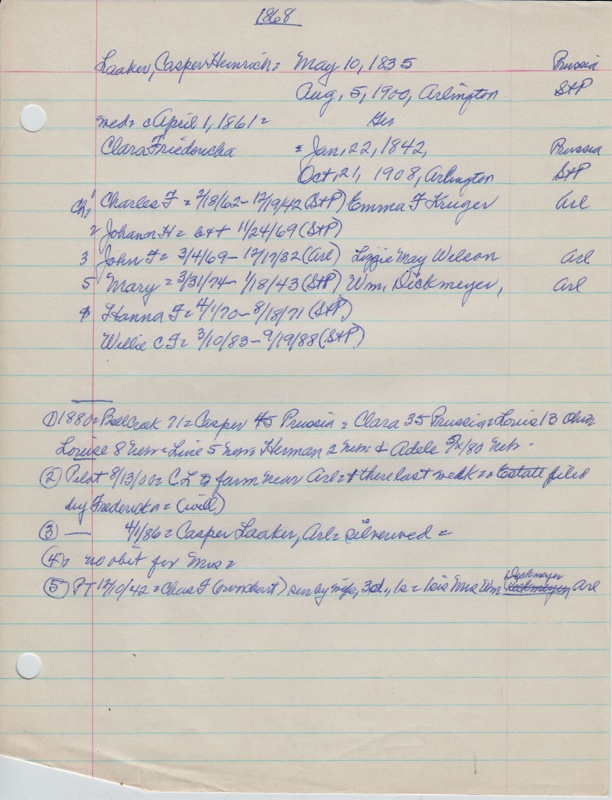 1868
Laaker, Casper Heinrich = May 10, 1835 Prussia
Aug, 5, 1900, Arlington StP
wed = April 1, 1861 = Ger
Clara Friedericha = Jan, 22, 1842, Prussia
Oct, 21, 1908, Arlington StP
Ch, 1 Charles F = 2/18/62 - 12/19/42 (StP) Emma F Kruger Arl
2 Johann H = 11/24/69 (StP)
3 John F = 3/4/69 - 12/17/32 (Arl) Lizzie May Wilson Arl
5 Mary = 3/31/74 - 1/18/43 (StP) Wm, Dickmeyer, Arl
4 Hanna F = 4/1/70 - 8/18/71 (StP)
Willie C F = 3/10/83 - 9/19/88 (StP)
① 1880 = Bell Creek 71 = Casper 45 Prussia = Clara 35 Prussia = Louis 13 Ohio
Louise 8 Neb = Line 5 Neb = Herman 2 Neb & Adele 5/80 Neb -
② Pilot 8/13/00 = C L farm near Arl = there last week = Estate filed
by Frederick = (will)
③ — 4/1/86 = Casper Laaker, Arl = silver wed =
④ no obit for Mrs =
⑤ PT 12/10/42 = Chas F sur by wife, 3d, 1s = 1sis Mrs Wm Dickmeyer Arl